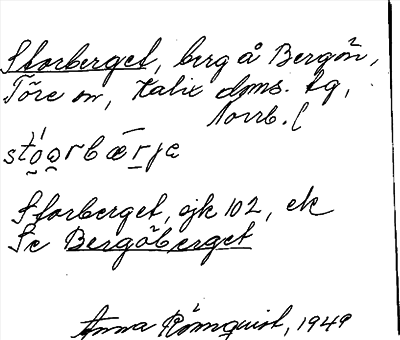 Storberget, berg å Bergön,
Töre sn, Kalix doms. tg,
Norrb. l
stoorbærje
Storberget, ejk 102, ek
Se Bergöberget
Anna Rönnquist, 1949